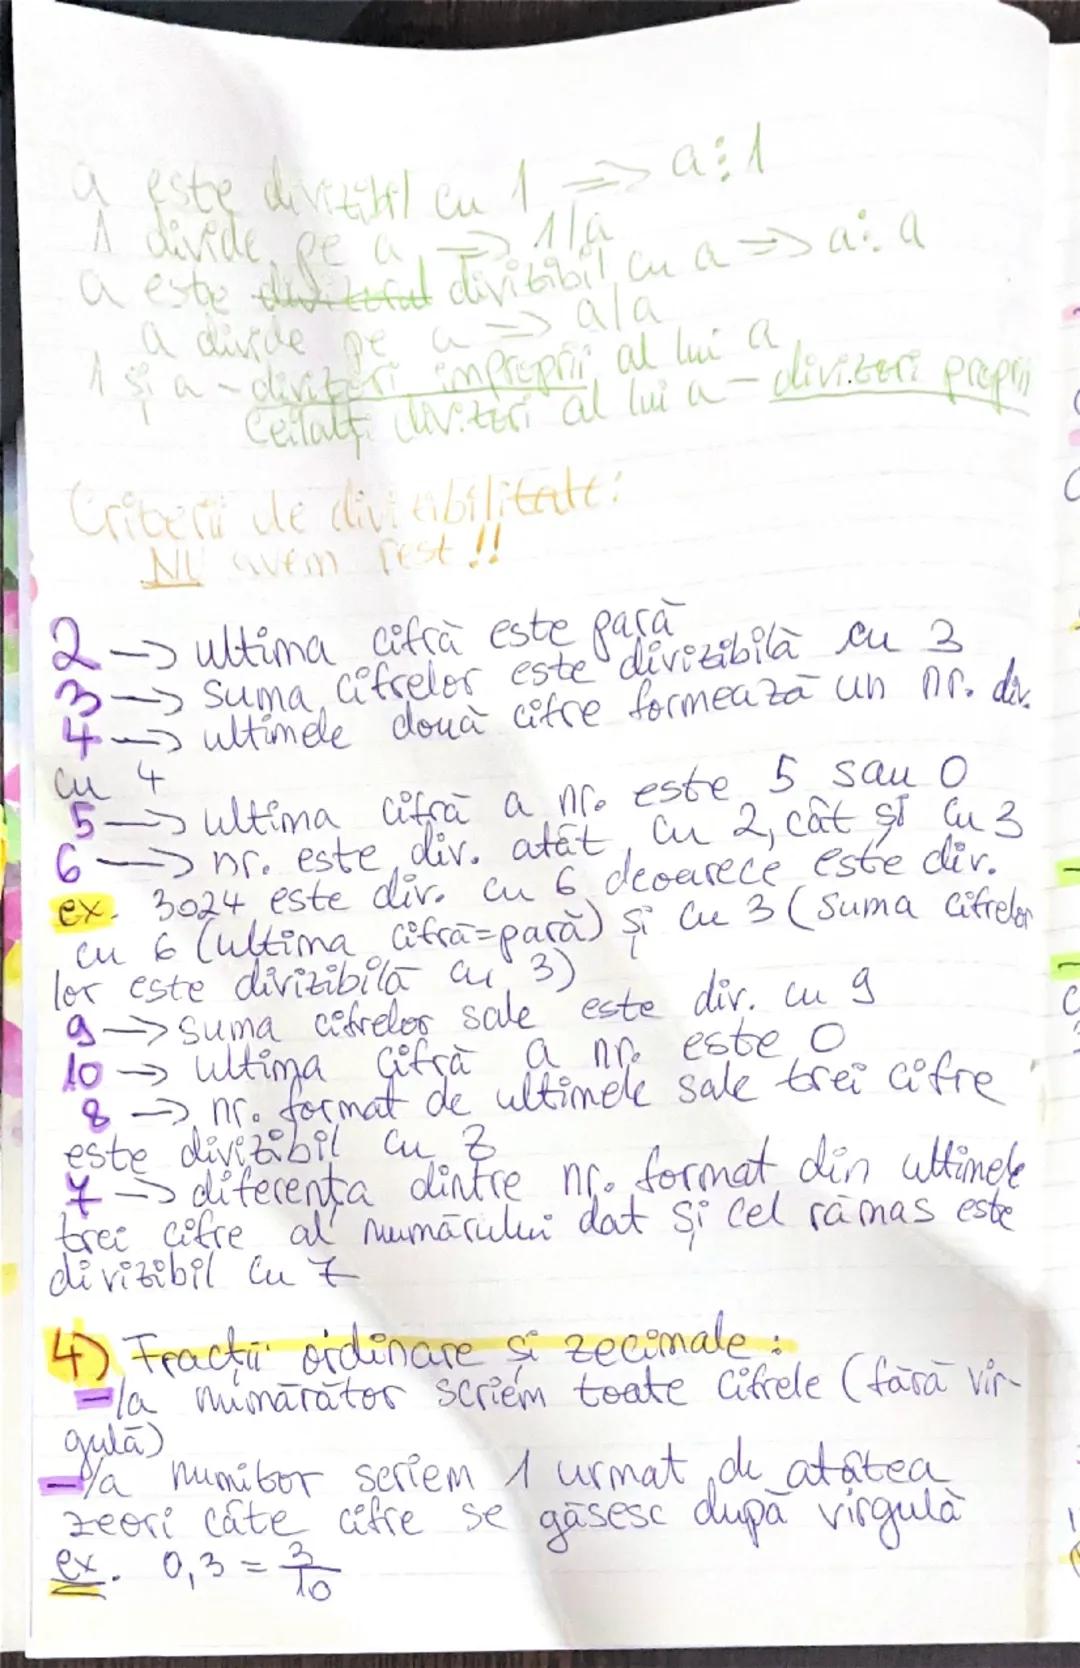 a este divizibil cu 1 => a⋮1
1 divide pe a => 1/a
a este divizorul divizibil cu a => a⋮a
a divide pe a => a/a
1 și a - divizori improprii al lui a
Ceilalți divizori al lui a - divizori proprii
Criterii de divizibilitate:
NU avem rest!!
2 -> ultima cifră este pară
3 -> suma cifrelor este divizibilă cu 3
4 -> ultimele două cifre formează un nr. div.
cu 4
5 -> ultima cifră a nr. este 5 sau 0
6 -> nr. este div. atât cu 2, cât și cu 3
ex. 3024 este div. cu 6 deoarece este div.
cu 6 (ultima cifră=pară) și cu 3 (suma cifrelor
lor este divizibilă cu 3)
9 -> suma cifrelor sale este div. cu 9
10 -> ultima cifră a nr. este 0
8 -> nr. format de ultimele sale trei cifre
este divizibil cu 8
7 -> diferența dintre nr. format din ultimele
trei cifre al numărului dat și cel rămas este
divizibil cu 7
4) Fracții ordinare și zecimale:
-la numărător scriem toate cifrele (fără vir-
gulă)
-la numitor scriem 1 urmat de atâtea
zeori câte cifre se găsesc după virgulă
ex. 0,3 = 3/10